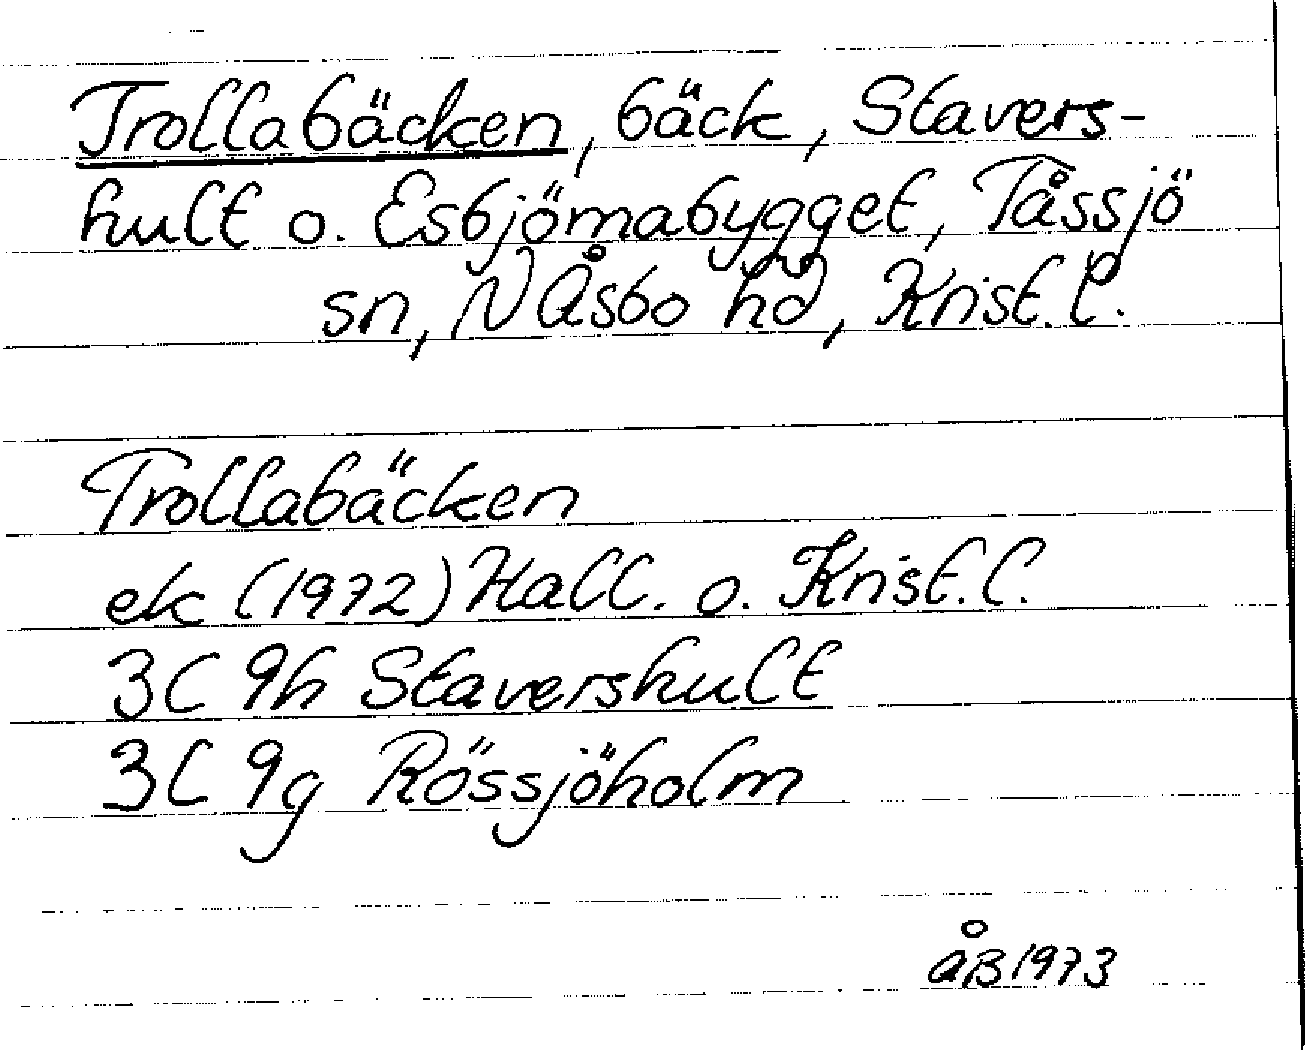 Trollabäcken, bäck, Stavers-
hult o. Esbjörnabygget, Tåssjö
sn, N Åsbo hd, Krist. l.
Trollabäcken
ek (1972) Hall. o. Krist. l.
3C 9h Stavershult
3C 9g Rössjöholm
ÅB 1973